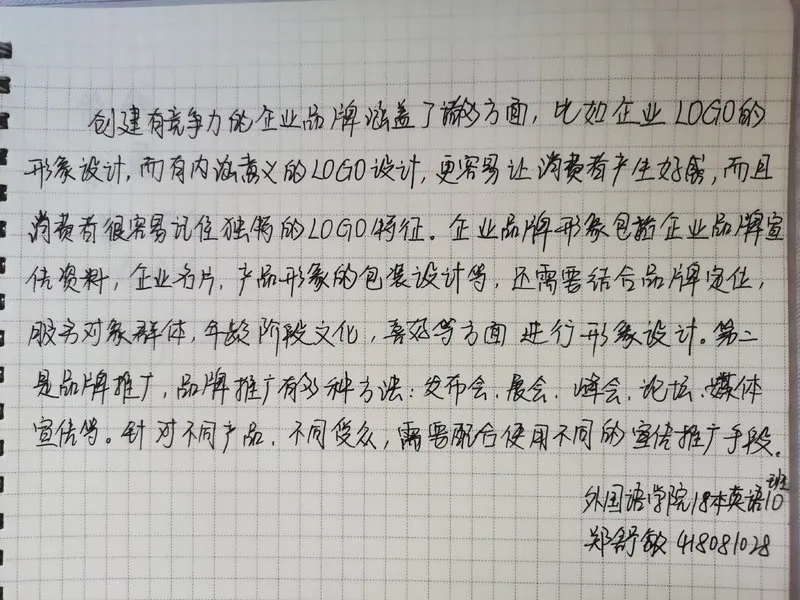 创建有竞争力的企业品牌涵盖了诸多方面，比如企业LOGO的
形象设计，而有内涵意义的LOGO设计，更容易让消费者产生好感，而且
消费者很容易记住独特的LOGO特征。企业品牌形象包括企业品牌宣
传资料，企业名片，产品形象的包装设计等，还需要结合品牌定位，
服务对象群体，年龄阶段文化，喜好等方面进行形象设计。第二
是品牌推广，品牌推广有多种方法：发布会、展会、峰会、论坛、媒体
宣传等。针对不同产品、不同受众，需要配合使用不同的宣传推广手段。
外国语学院18本英语10班
郑舒敏 418081028